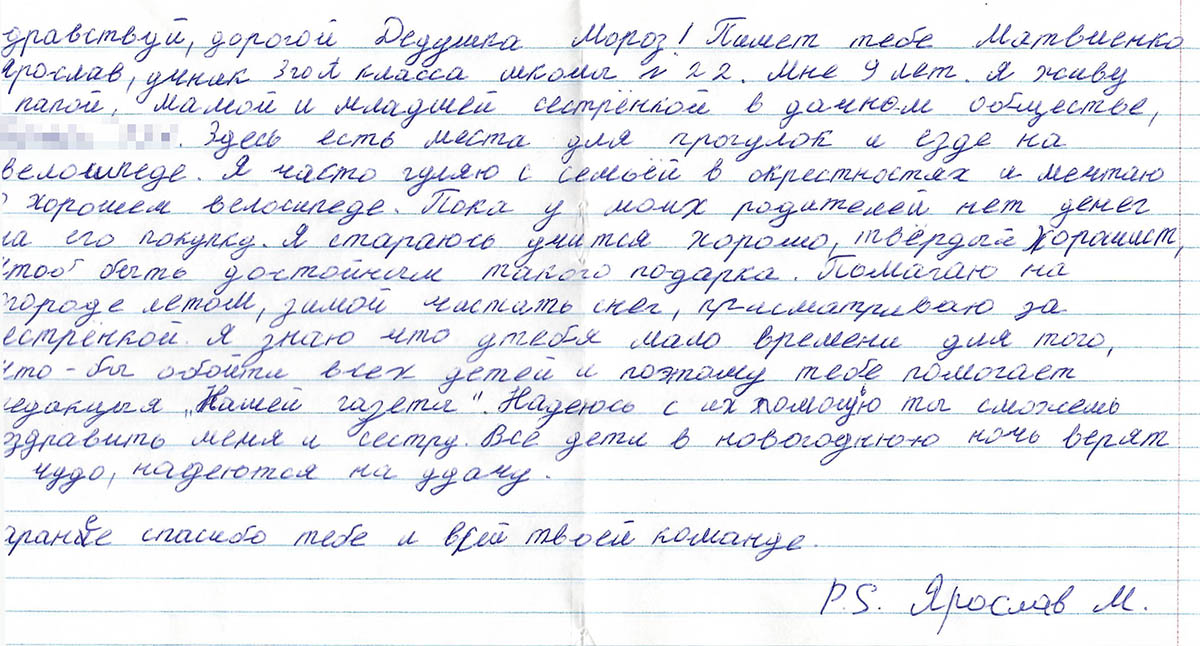 дравствуй, дорогой Дедушка Мороз! Пишет тебе Матвиенко
Ярослав, учник 3го А класса школы № 22. Мне 9 лет. Я живу
папой, мамой и младшей сестрёнкой в дачном обществе,
. Здесь есть места для прогулок и езде на
велосипеде. Я часто гуляю с семьёй в окрестностях и мечтаю
о хорошем велосипеде. Пока у моих родителей нет денег
на его покупку. Я стараюсь учится хорошо, твёрдый хорошист,
чтоб быть достойным такого подарка. Помагаю на
городе летом, зимой чистать снег, присматриваю за
естрёнкой. Я знаю что утебя мало времени для того,
что-бы обойти всех детей и поэтому тебе помогает
редакцыя „Нашей газеты". Надеюсь с их помощю ты сможешь
оздравить меня и сестру. Все дети в новогоднюю ночь верят
чудо, надеются на удачу.
аранее спасибо тебе и всей твоей команде.
P.S. Ярослав М.